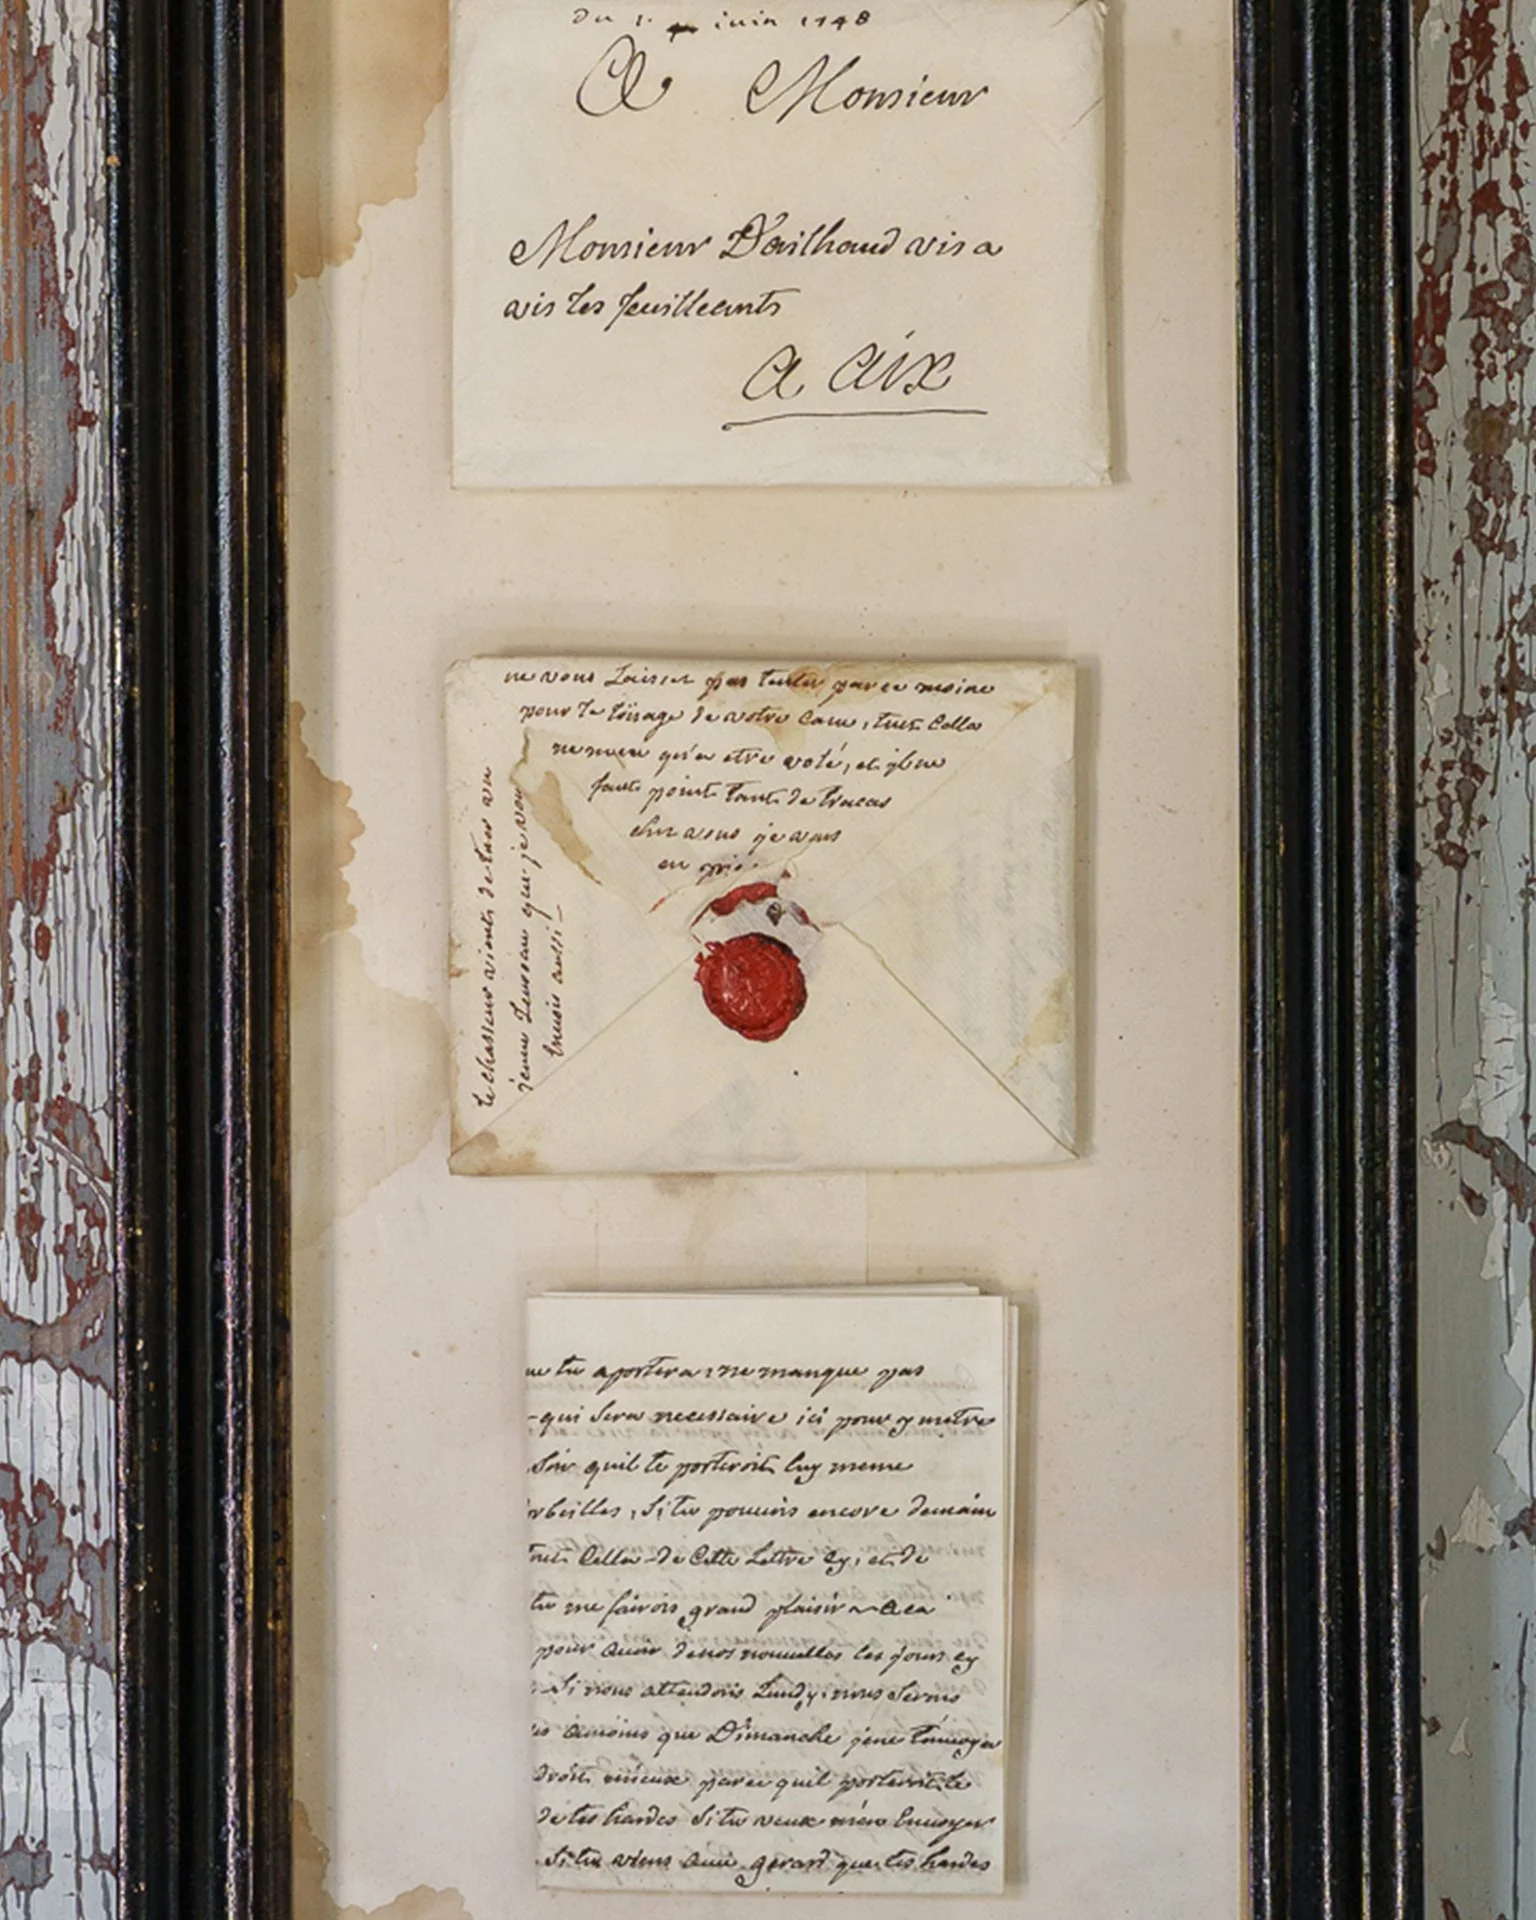 du 1. juin 1748
A Monsieur
Monsieur D'ailhaud vis a
vis les feuilleants
A Aix
ne vous Laisses pas tenter par ce moine
pour le loüage de votre Cave, tout Cella
ne mene qu'a etre volé, et il ne
faut point tant de tracas
ches vous je vous
en prie.
le chasseur vient de tuer un
jeune Levreau que je vous
Envoie aussi
tu aportera: ne manque pas
qui sera necessaire ici pour y metre
Soir quil te porteroit luy meme
orbeilles, Si tu pouvois encore demain
Cella de Cette Lettre Cy, et de
tu me fairois grand plaisir
pour avoir de nos nouvelles les jours cy
Si nous attendons Lundy, nous Serons
amoins que Dimanche je ne t'envoya
droit mieux parce quil porteroit le
de tes hardes Si tu veux m'en Envoyer
Si tu viens avec gerard que tes hardes